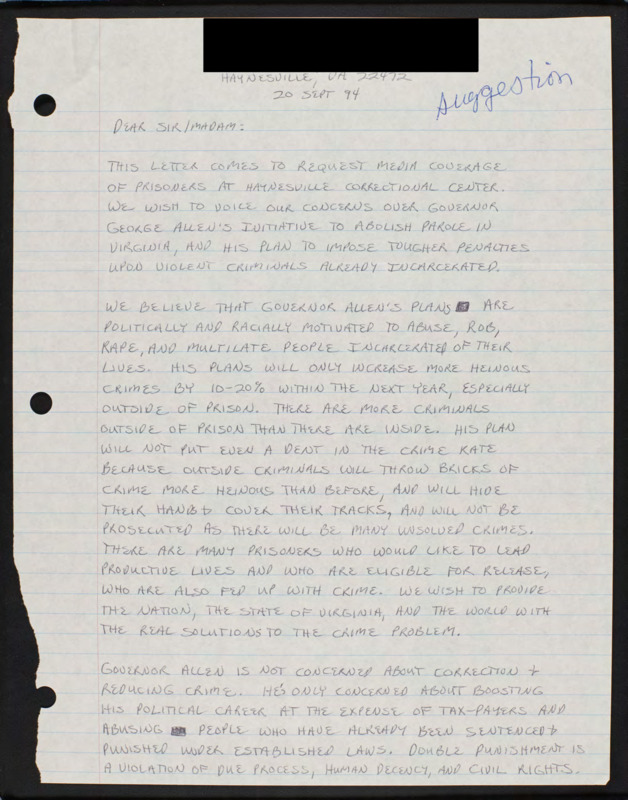 HAYNESVILLE, VA 22472
20 SEPT 94
suggestion
DEAR SIR/MADAM:
THIS LETTER COMES TO REQUEST MEDIA COVERAGE
OF PRISONERS AT HAYNESVILLE CORRECTIONAL CENTER.
WE WISH TO VOICE OUR CONCERNS OVER GOVERNOR
GEORGE ALLEN'S INITIATIVE TO ABOLISH PAROLE IN
VIRGINIA, AND HIS PLAN TO IMPOSE TOUGHER PENALTIES
UPON VIOLENT CRIMINALS ALREADY INCARCERATED.
WE BELIEVE THAT GOVERNOR ALLEN'S PLANS ARE
POLITICALLY AND RACIALLY MOTIVATED TO ABUSE, ROB,
RAPE, AND MULTILATE PEOPLE INCARCERATED OF THEIR
LIVES. HIS PLANS WILL ONLY INCREASE MORE HEINOUS
CRIMES BY 10-20% WITHIN THE NEXT YEAR, ESPECIALLY
OUTSIDE OF PRISON. THERE ARE MORE CRIMINALS
OUTSIDE OF PRISON THAN THERE ARE INSIDE. HIS PLAN
WILL NOT PUT EVEN A DENT IN THE CRIME RATE
BECAUSE OUTSIDE CRIMINALS WILL THROW BRICKS OF
CRIME MORE HEINOUS THAN BEFORE, AND WILL HIDE
THEIR HANDS & COVER THEIR TRACKS, AND WILL NOT BE
PROSECUTED AS THERE WILL BE MANY UNSOLVED CRIMES.
THERE ARE MANY PRISONERS WHO WOULD LIKE TO LEAD
PRODUCTIVE LIVES AND WHO ARE ELIGIBLE FOR RELEASE,
WHO ARE ALSO FED UP WITH CRIME. WE WISH TO PROVIDE
THE NATION, THE STATE OF VIRGINIA, AND THE WORLD WITH
THE REAL SOLUTIONS TO THE CRIME PROBLEM.
GOVERNOR ALLEN IS NOT CONCERNED ABOUT CORRECTION &
REDUCING CRIME. HE'S ONLY CONCERNED ABOUT BOOSTING
HIS POLITICAL CAREER AT THE EXPENSE OF TAX-PAYERS AND
ABUSING PEOPLE WHO HAVE ALREADY BEEN SENTENCED &
PUNISHED UNDER ESTABLISHED LAWS. DOUBLE PUNISHMENT IS
A VIOLATION OF DUE PROCESS, HUMAN DECENCY, AND CIVIL RIGHTS.